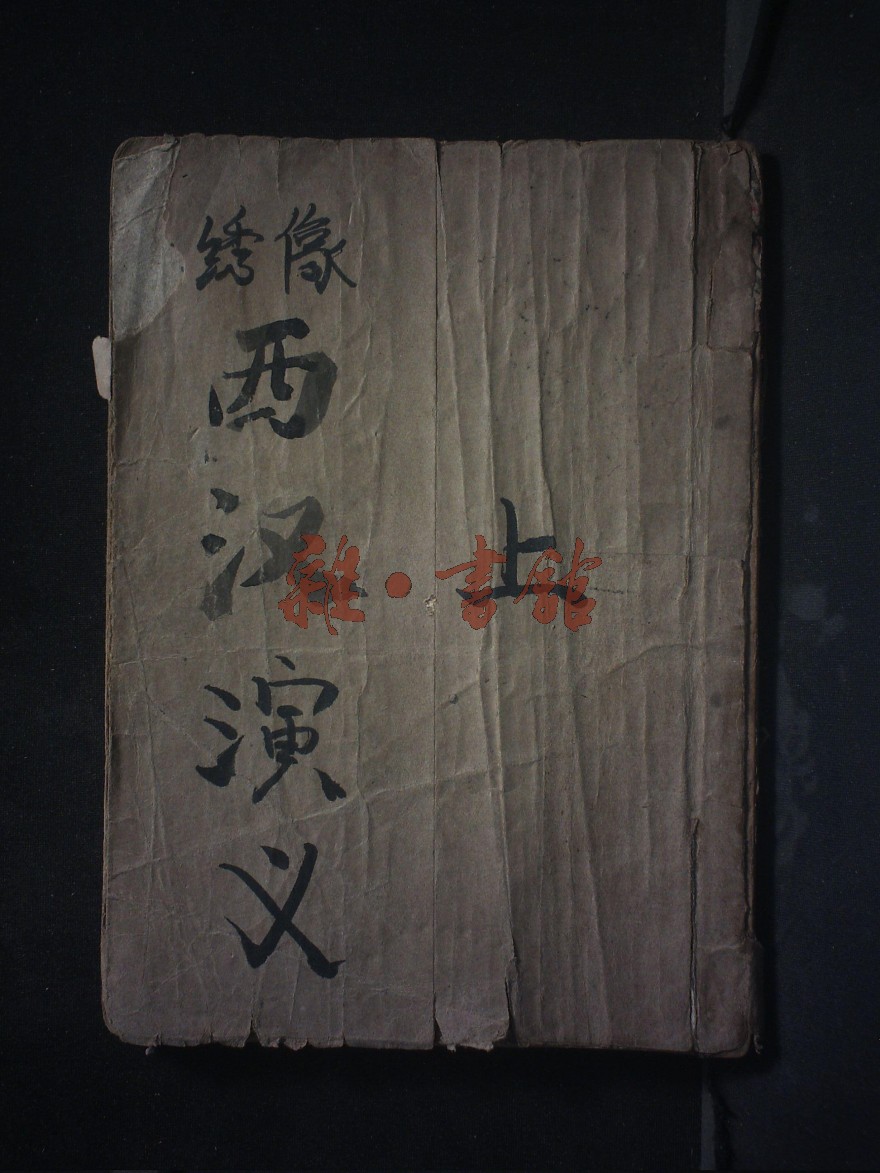 绣像
西汉演义
上
雜·書館